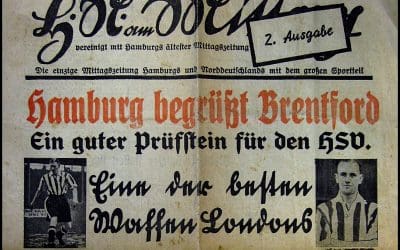 H.N. am Mittag
2. Ausgabe
vereinigt mit Hamburgs ältester Mittagszeitung
Die einzige Mittagszeitung Hamburgs und Norddeutschlands mit dem großen Sportteil
Hamburg begrüßt Brentford
Ein guter Prüfstein für den HSV.
Eine der besten
Waffen Londons